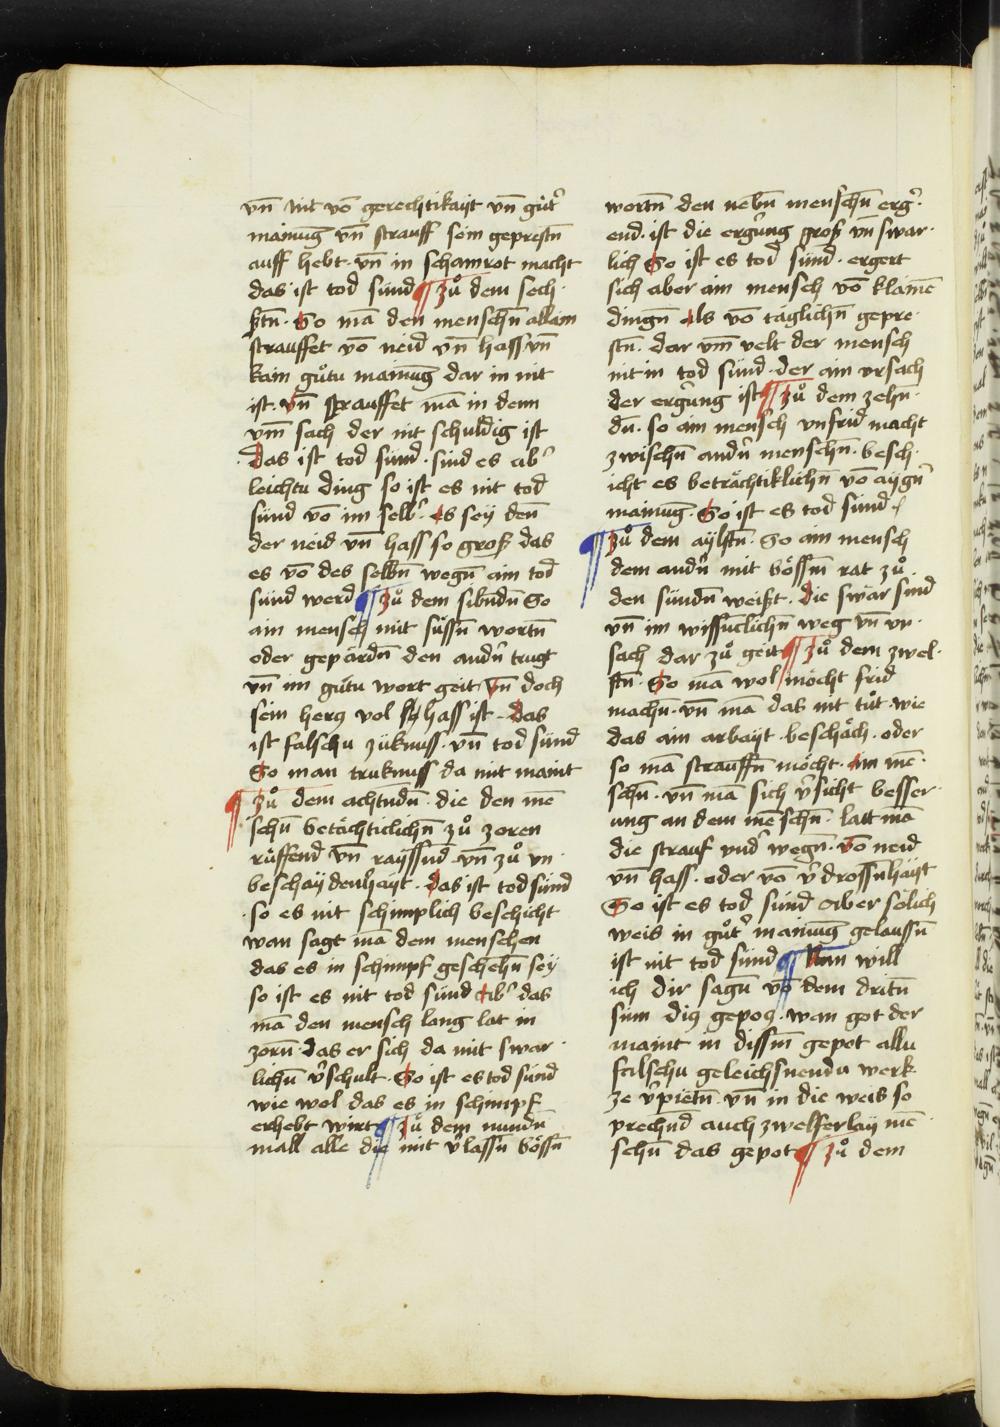 vn̄ nit vō gerechtikayt vn̄ gůt᷑
mainūg vn̄ strauff sein geprestn̄
auff hebt · vn̄ in schamrot macht
das ist tod sünd ¶ Zů dem sech·
stn̄ · So mā den menschn̄ allain
strauffet vō neid vn̄ hass vn̄
kain gůtu mainūg dar in nit
ist · vn̄ strauffet mā in denn
vm̄ sach der nit schuldig ist
· das ist tod sünd · sind es ab᷑
leichtu ding so ist es nit tod
sünd vō im selb᷑ · es sey den̄
der neid vn̄ hass so groß das
es vō des selbn̄ wegn̄ ain tod
sünd werd ¶ Zů dem sibndn̄ So
ain mensch mit süssn̄ wortn̄
oder gepärdn̄ den andn̄ trugt
vn̄ im gůtu wort geit vn̄ doch
sein hercz vol hass ist · das
ist falschu züknuss · vn̄ tod sünd
So man truknuss da mit maint
¶ Zů dem achtndn̄ · die den mē
schn̄ betächticlichn̄ zů zoren
rüffend vn̄ rayssnd vn̄ zů vn·
beschaydenhayt · das ist tod sünd
· so es nit schimplich beschicht
wan sagt mā dem menschen
das es in schimpf geschehn̄ sey
so ist es nit tod sünd ab᷑ das
mā den mensch lang lat in
zorn̄ · das er sich da mit swar·
lichn̄ v᷑schult · So ist es tod sünd
wie wol das es in schimpf
erhebt wirt ¶ Zů dem nundn̄
mall alle die mit v᷑lassn̄ bössn̄
wortn̄ den nebn̄ menschn̄ erg᷑·
end · ist die erg᷑ung groß vn̄ swar·
lich So ist es tod sünd · ergert
sich aber ain mensch vō klainē
dingn̄ als vō taglichn̄ gepre·
stn̄ · dar vm̄ velt der mensch
nit in tod sünd · der ain vrsach
der erg᷑ung ist ¶ Zů dem zehn̄·
dn̄ · so ain mensch vnfrid macht
zwischn̄ andn̄ menschn̄ · besch·
icht es beträchtiklichn̄ vō aygn᷑
mainūg · So ist es tod sünd ·
¶ Zů dem aylftn̄ · So ain mensch
dem andn̄ mit bössm̄ rat zů·
den sündn̄ weißt · die swär sind
vn̄ im wissnclichn̄ weg vn̄ vr·
sach dar zů geit ¶ Zů dem zwel·
ftn̄ · So mā wol möcht frid
machn̄ · vn̄ mā das nit tůt · wie
das ain arbayt · beschäch · oder
so mā strauffn̄ möcht · ain mē·
schn̄ · vn̄ mā sich v᷑sicht besser·
ung an dem mēschn̄ · latt mā
die strauf vnd᷑ wegn̄ · vō neid
vn̄ hass · oder vō v᷑drossn̄hayt
So ist es tod sünd Aber sölich
weis in gůt᷑ mainūg gelaussn̄
ist nit tod sünd ¶ Nun will
ich dir sagn̄ vō dem dritn̄
sinn dicz gepocz · wan got der
maint in dissm̄ gepot allu
falschu geleichsnendu werk
ze v᷑pietn̄ · vn̄ in die weis so
prechnd auch zwelferlay mē
schn̄ das gepot ¶ Zů dem